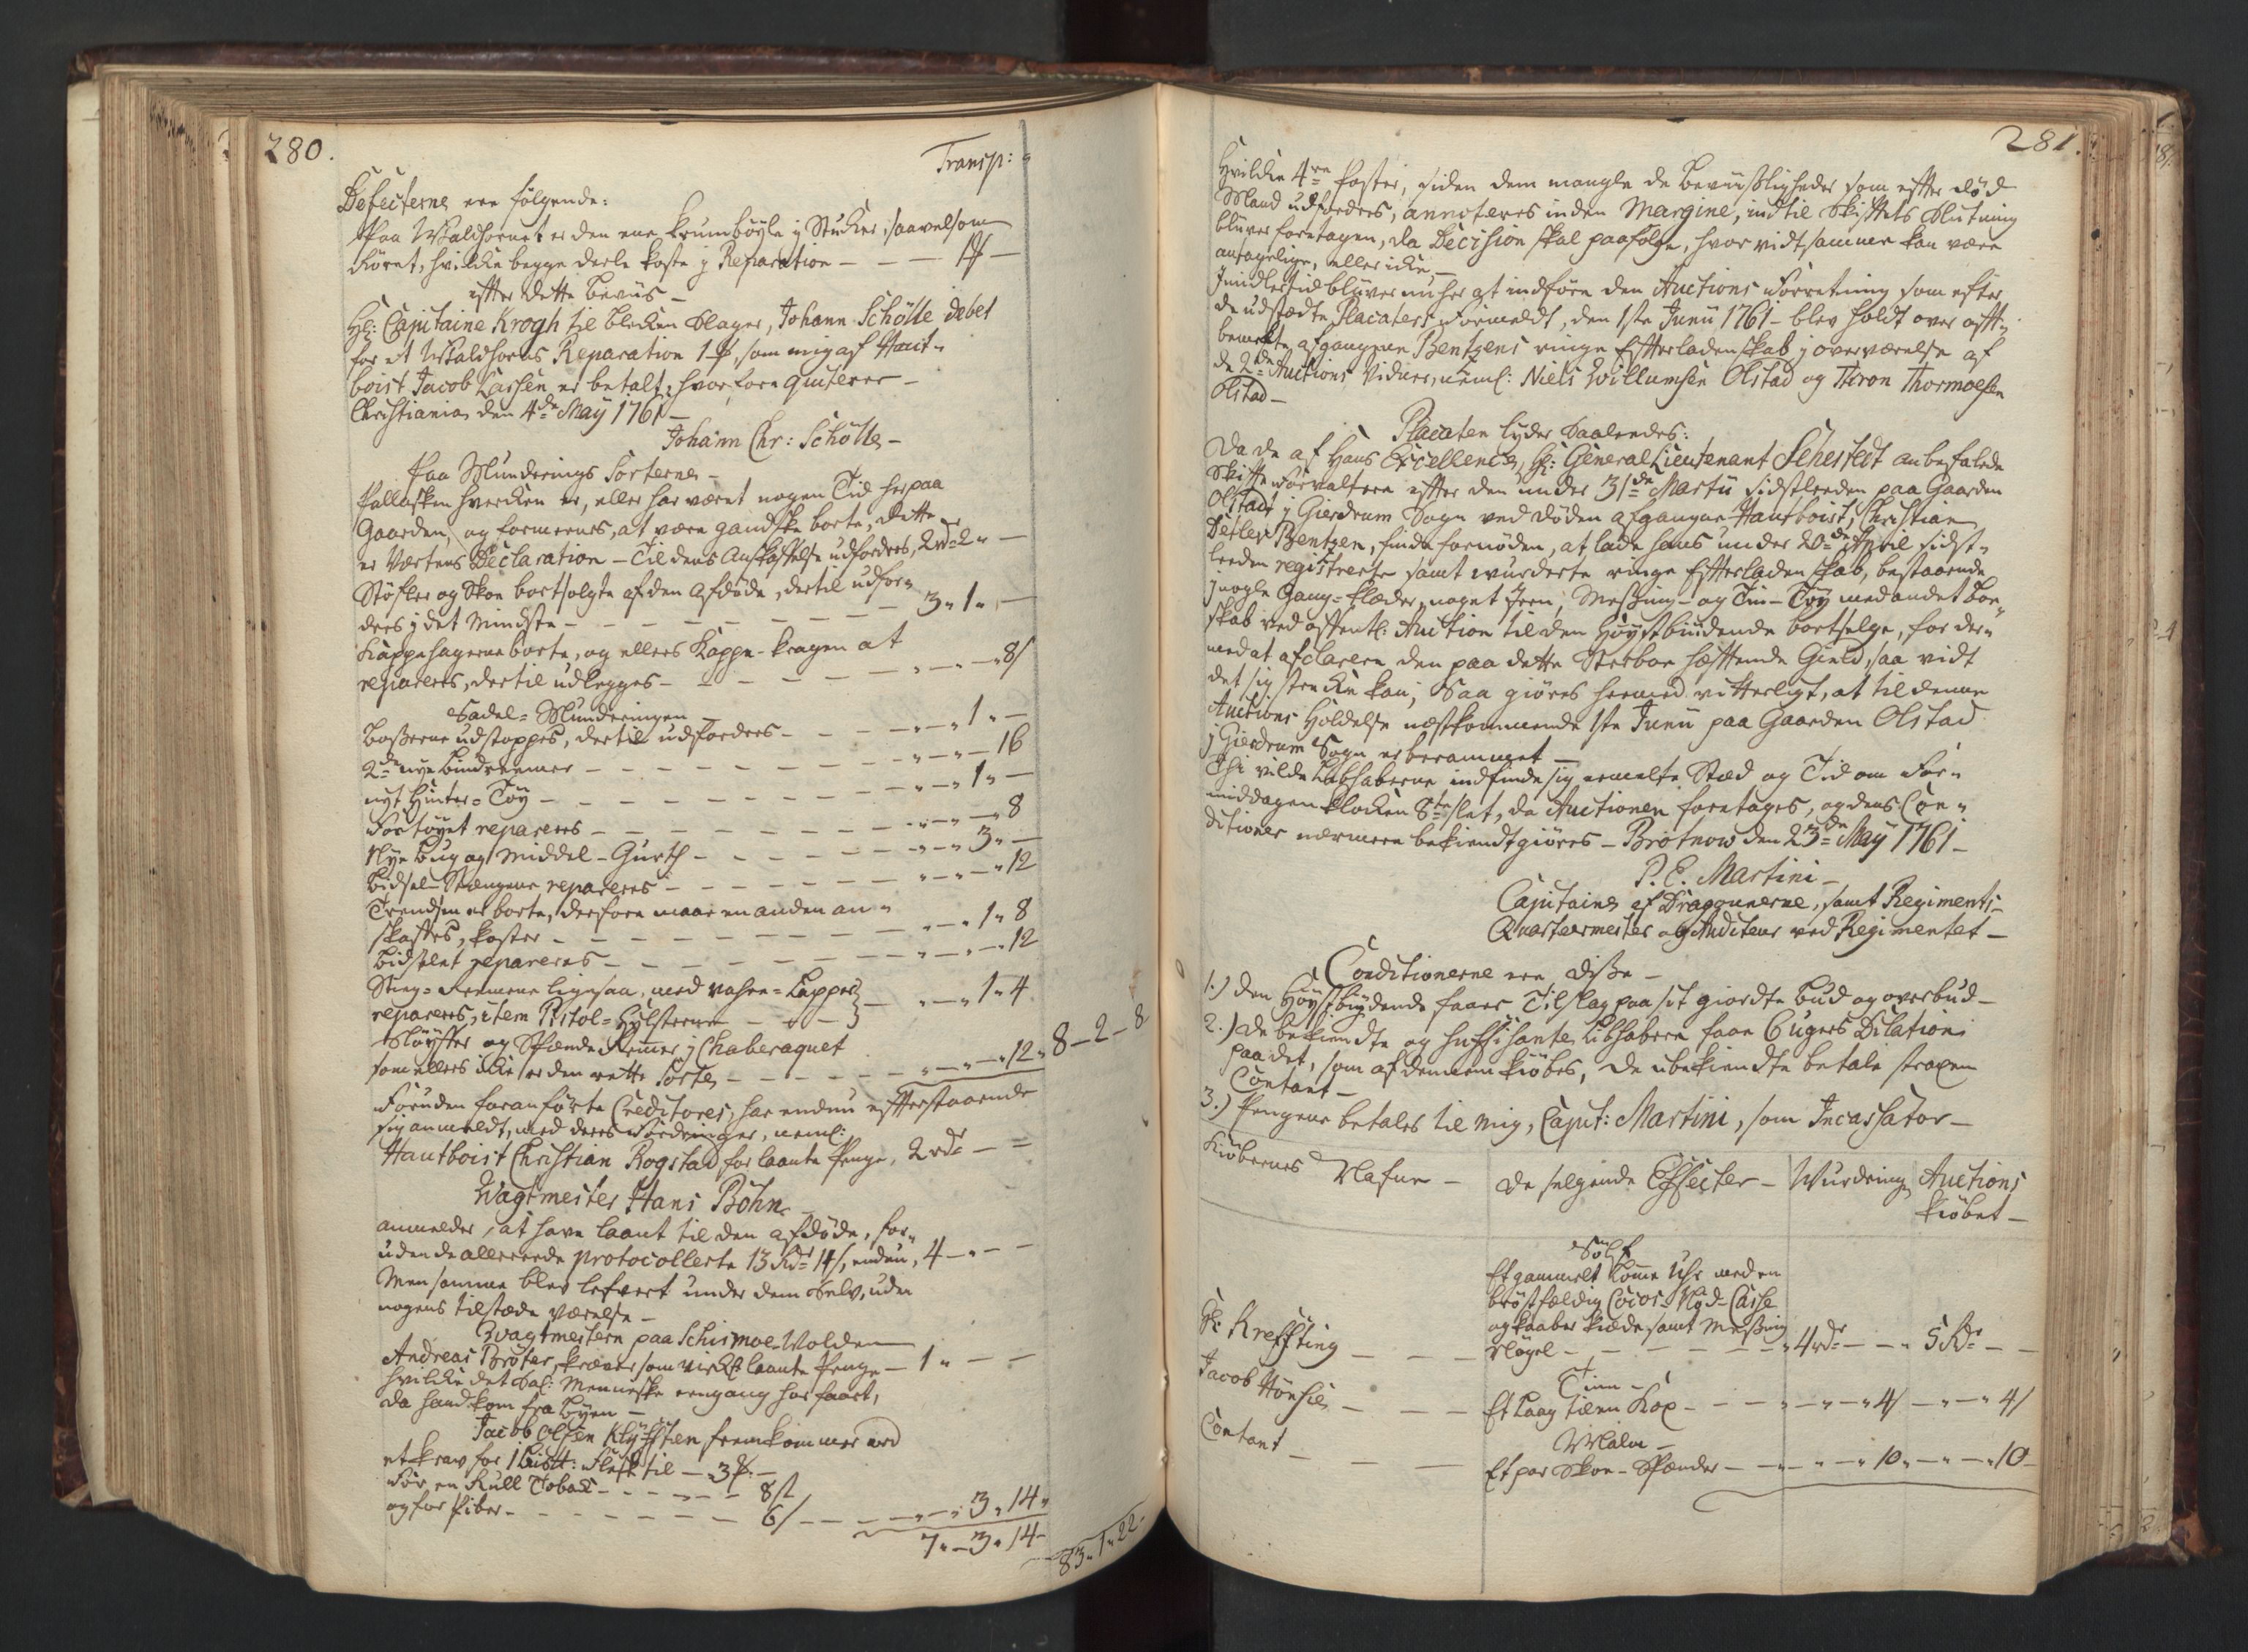 280.
Transp:
Defecterne ere følgende:
Paa Waldhornet er den ene Krumbøyle i Stucker, saavelsom
Røret, hvilcke begge deele koste i Reparation - - - 1 -
efter dette beviis -
Hr: Capitaine Krogh til blicken Slager, Johann Schölle debet
for et Waldhorns Reparation 1, som mig af Haut-
boist Jacob Larsen er betalt, hvorfore quiterer -
Christiania den 4de May 1761 -
Johann Chr: Schölle -
Paa Munderings Sorterne -
Pallasken hvercken er, eller har været nogen Tid her paa
Gaarden, og formeenes, at være gandske borte, dette
er Værtens Declaration - Til dens Anskaffelse udfordres, 2 rdr 2 " -
Støfler og Skoe bortsolgte af den afdøde, dertil udfor-
dres i det mindste - - - - - - - 3 " 1 " -
Kappehagerne borte, og ellers Kappe-Kragen at
repareres, dertil udlegges - - - - - " - " - 8 /
Sadel-Munderingen -
Boßerne udstoppes, dertil udfordres - - - " - " 1 " -
2de nye Bindreemer - - - - - - - " - " - 16
nyt Hinter-Tøy - - - - - - - - " - " 1 " -
Fortøyet repareres - - - - - - - " - " - 8
Nye Bug og Middel-Gurth - - - - - " - " 3 " -
Bidsel-Stængerne repareres - - - - - " - " - 12
Trendsen er borte, derfore maae en anden an-
skaffes, koster - - - - - - - - " - " 1 " 8
Bidselet repareres - - - - - - - " - " - 12
Stieg-Reemerne ligesaa, med
repareres, item Pistol-Hylsterne - - - } - " - " 1 - 4
Støyfter og Spænde Remer i Chabraquet
som ellers icke er den rette Sorte, - - - - - " - " - 12 " 8 - 2 - 8
Foruden foranførte Creditores, har endnu efterstaaende
sig anmeldt, med deres Fordringer, neml:
Hautboist Christian Rogstad for laante Penge, 2 rdr - =
Wagtmester Hans Bohn -
anmelder, at have laant til den afdøde, for-
uden de allereede protocollerte 13 Rdr 14 /, endnu, 4 - " - -
Men samme blev lefvert under dem Selv, uden
nogens tilstæde værelse -
Wagtmestern paa Schismoe-Wolden
Andreas Broter, kræver som virkel: laante Penge - 1 " - -
hvilcke det Sal: Menneske eengang har faaet,
da hand kom fra Byen -
Jacob Olsen Kløfften fremkommer med
et krav for 1 Flesk til - 3 -
For en Rull Tobac - - - - - - 8 /
og for Piber - - - - - - - - 6 / - - - " - " 3 " 14 "
7 " - 3 " 14 -
83 " 1 " 22 -
281.
Hvilcke 4re Poster, siden dem mangle de Beviisligheder som efter død
Mand udfordres, annoteres inden Margine, indtil Skiftets Slutning
bliver foretagen, da Decision skal paafølge, hvorvidt samme kan være
antagelige, eller icke, -
Imidlertid bliver nu her at indføre den Auctions Forretning som efter
de udstædte Placaters Formeldt, den 1ste Junii 1761 - blev holdt over oft-
bemelte afgangne Bentzens ringe Efterladenskab i overværelse af
de 2de Auctions Vidner, neml: Niels Willumsen Olstad og Thron Thormoesen
Olstad -
Placaten lyder Saaledes:
Da de af Hans Excellence, Hr: General Lieutenant Schestedt anbefalede
Skifte Forvaltere efter den under 31de Martii sidstleeden paa Gaarden
Olstad i Gierdrum Sogn ved døden afgangne Hautboist, Christian
Detlev Bentzen, finde fornøden, at lade hans under 20de April sidst-
leeden registrerte samt wurderte ringe Efterladenskab, bestaaende
i nogle Gang-Klæder, noget Jern, Meßing- og Tin-Tøy med andet Boe-
skab ved offentl: Auction til den Høystbiudende bortselge, for der-
med at afclarere den paa dette Sterboe hæftende Gield, saa vidt
det sig strecke kan; Saa giøres hermed vitterligt, at til denne
Auctions Holdelse næstkommende 1ste Junii paa Gaarden Olstad
i Gierdrum Sogn er berammet -
Thi vilde Liebhaberne indfinde sig ermelte Stæd og Tid om For-
middagen Klocken 8te slet, da Auctionen foretages, og dens Con-
ditioner nærmere bekiendtgiøres - Brotnow den 23de May 1761 -
P. E. Martini -
Capitaine af Dragounerne, samt Regiments-
Quarteermester og Auditeur ved Regimentet -
Conditionerne ere diße -
1.) Den Høystbiydende faaer Tilslag paa sit giordte Bud og overbud -
2.) De bekiendte og suffisante Liebhabere faae 6 Ugers Dilation
paa det, som af dennem kiøbes, De ubekiendte betale straxen
Contant -
3.) Pengene betales til mig, Capit: Martini, som Incassator -
Kiøbernes Nafne - De selgende Effecter - Wurdering Auctions
kiøbet -
Sølf
Et gammelt Lomme Uhr med en
brøstfældig Cocos-Nød-Casse
og Kaaber kiæde samt Meßing
Hr: Kreffting - - - Nøgel - - - - - - 4 rdr - - " 5 Rdr - -
Tinn -
Jacob Hønsie, - - - Et Laag til en Kop - - - " - " - 4 / - " - " 4 /
Malm -
Contant - - - Et par Skoe-Spænder - - " - " - 10 " - " - " 10 -